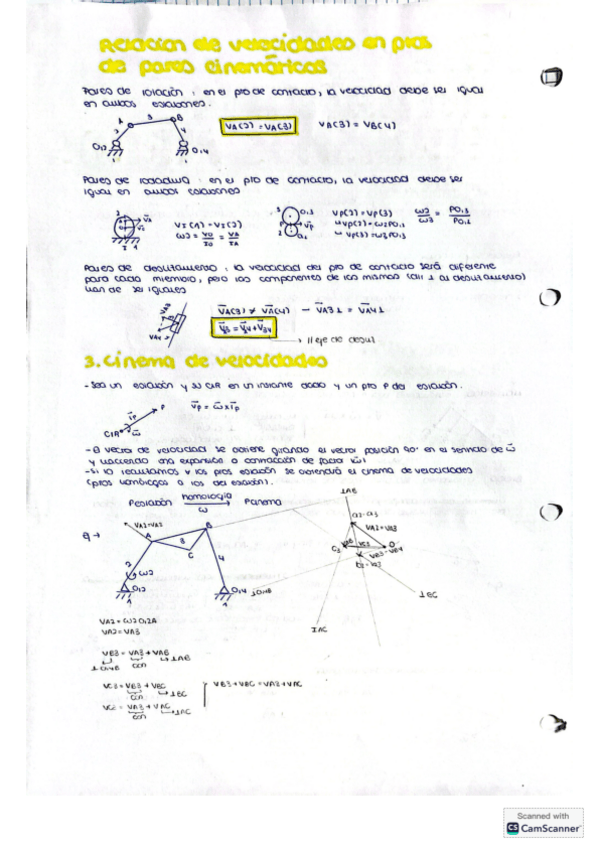 Relación de velocidades en ptos
de pares cinemáticos
Pares de rotación : en el pto de contacto, la velocidad debe ser igual
en ambos eslabones.
A 3 B
2 4
O12 O14
1 1
VA(2) = VA(3) VA(3) = VB(4)
Pares de rodadura : en el pto de contacto, la velocidad debe ser
igual en ambos eslabones
VI(1) = VI(2)
I 1
VP(2) = VP(3)
Pares de deslizamiento : la velocidad del pto de contacto será diferente
para cada miembro, pero los componentes de los mismos (al ⊥ al deslizamiento)
han de ser iguales
VA3
VA4
VA(3) ≠ VA(4) → VA3⊥ = VA4⊥
// eje de desliz
3. Cinema de velocidades
- Sea un eslabón y su CIR en un instante dado y un pto P del eslabón.
CIR ω rp P vp = ω x rp
- El vector de velocidad se obtiene girando el vector posición 90° en el sentido de ω
y haciendo una expansión o contracción de factor |ω|
- Si lo realizamos y los ptos eslabón se obtendrá el cinema de velocidades
(ptos homólogos a los del eslabón).
homología
Peslabón → Pcinema
ω
⊥AB
VA2=VA3 B a2=a3
Ej → A 3 VA2=VA3
C C3 O
2 4 VB3=VB4
ω2 b3=b4
O12 O14 ⊥O4B ⊥BC
1 1
⊥AC
VA2 = ω2 O12A
VA2 = VA3
VB3 = VA3 + VAB
⊥O14B con ⊥AB
VC3 = VB3 + VBC VB3 + VBC = VA3 + VAC
con ⊥BC
VC3 = VA3 + VAC
con ⊥AC
Scanned with
CS CamScanner